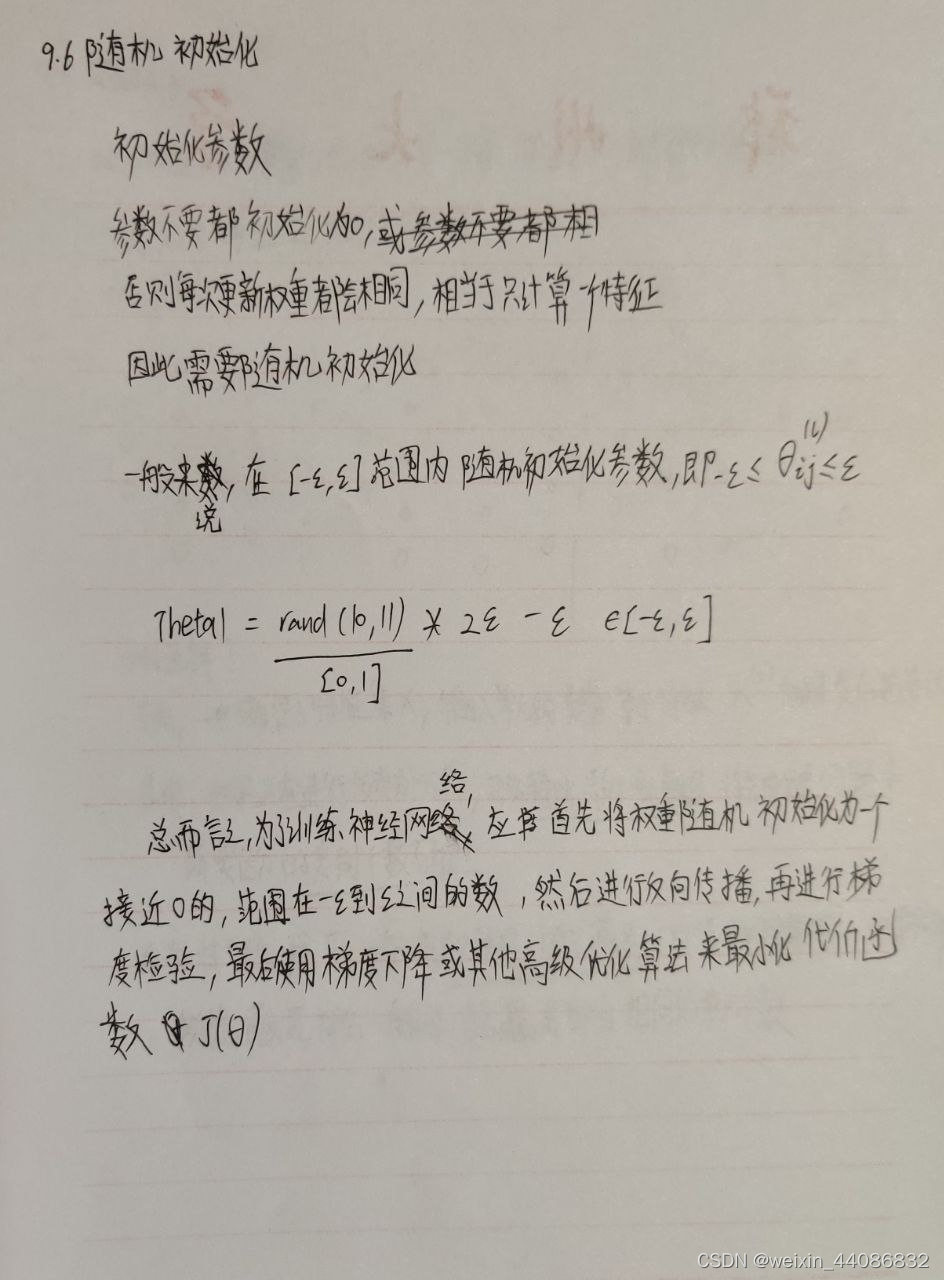 9.6 随机初始化
初始化参数
参数不要都初始化为0,或参数不要都相
否则每次更新权重都会相同,相当于只计算一个特征
因此需要随机初始化
一般来说,在[-ε,ε]范围内随机初始化参数,即-ε≤θij^(l)≤ε
Theta1 = rand(10,11) * 2ε - ε ∈[-ε,ε]
[0,1]
总而言之,为了训练神经网络,应 首先将权重随机初始化为一个
接近0的,范围在-ε到ε之间的数,然后进行反向传播,再进行梯
度检验,最后使用梯度下降或其他高级优化算法来最小化代价函
数 J(θ)
CSDN @weixin_44086832